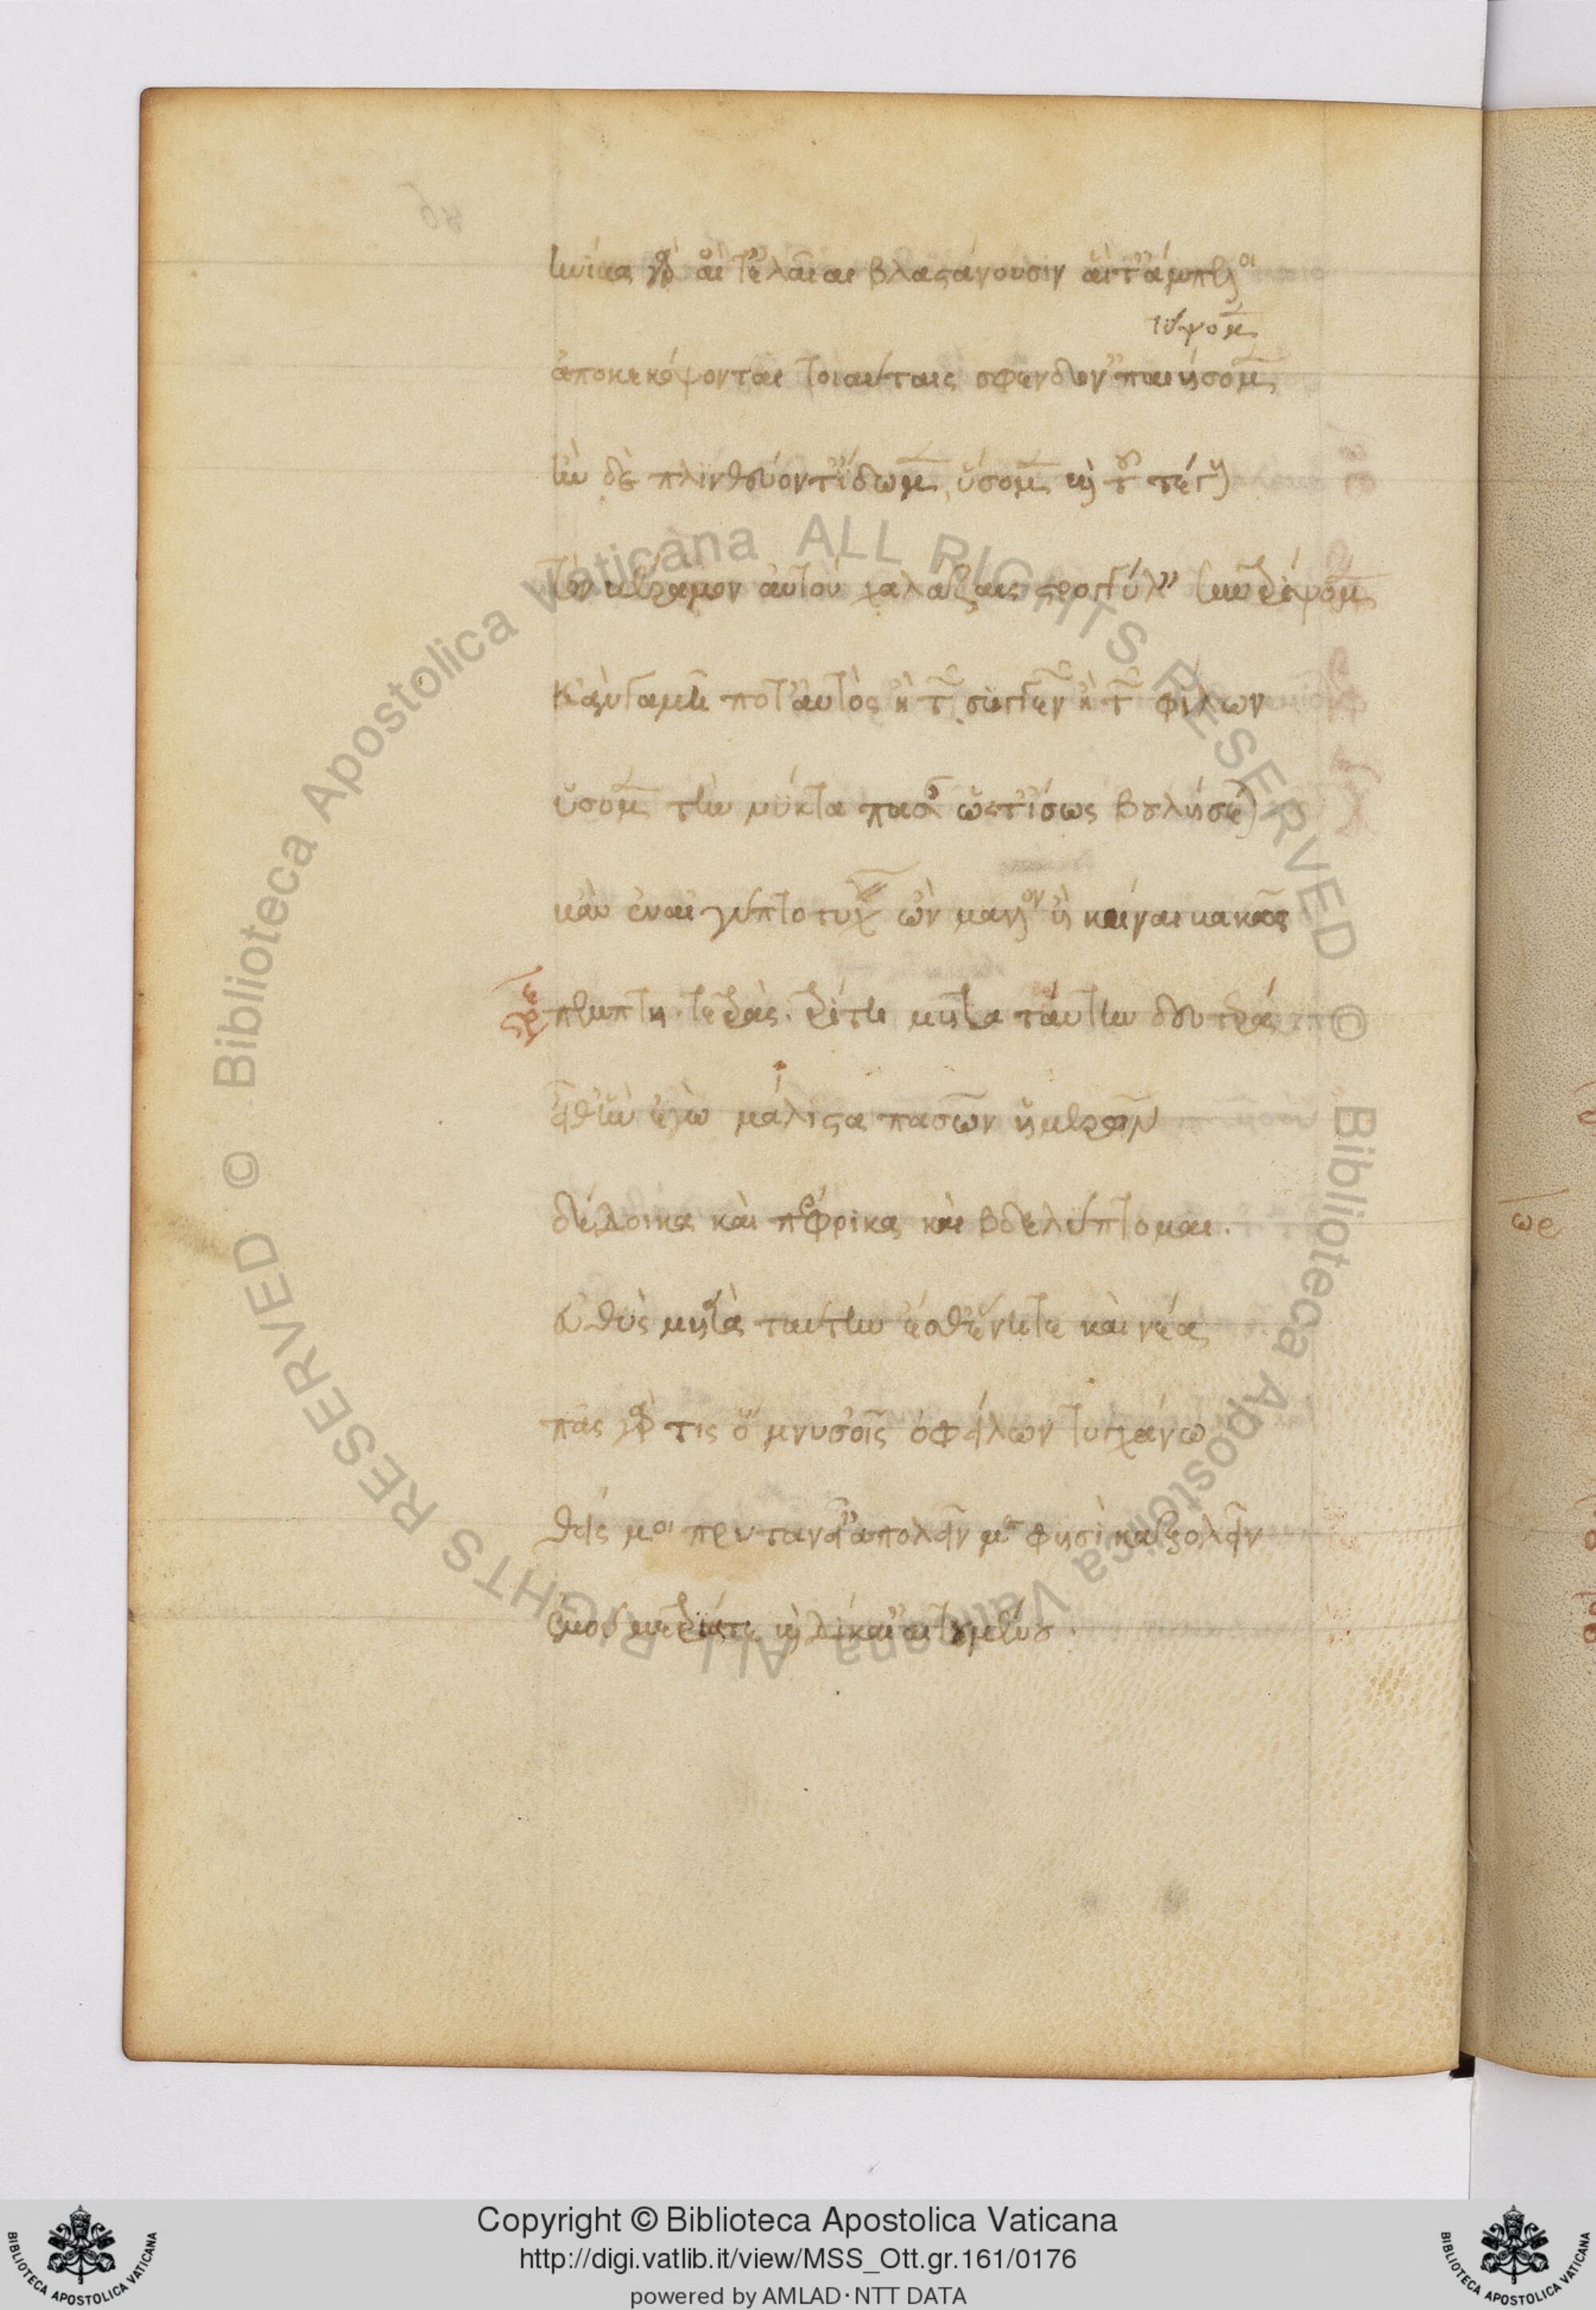 ἡνίκα γὰρ αἵ τ' ἐλᾶαι βλαστάνουσιν αἵ τ' ἄμπελοι
τύψομεν
ἀποκεκόψονται τοιαύταις σφενδόν παιήσομεν
ἢν δὲ πλινθεύοντ' ἴδωμεν, ὕσομεν καὶ τοῦ τέγους
τὸν κέραμον αὐτοῦ χαλάζαις στρογγύλαις συντρίψομεν
κἂν γαμῇ ποτ' αὐτὸς ἢ τῶν συγγενῶν ἢ τῶν φίλων
ὕσομεν τὴν νύκτα πᾶσαν ὥστ' ἴσως βουλήσεται
κἂν ἐν αἰγύπτῳ τυχεῖν ὢν μᾶλλον ἢ κρῖναι κακῶς
στρε πέμπτη. τετράς. τρίτη μετὰ ταύτην δευτέρα
εἶθ' ἣν ἐγὼ μάλιστα πασῶν ἡμερῶν
δέδοικα καὶ πέφρικα καὶ βδελύττομαι.
εὐθὺς μετὰ ταύτην ἔσθ' ἕνη τε καὶ νέα
πᾶς γάρ τις ὀμνὺς οἷς ὀφείλων τυγχάνω
θείς μοι πρυτανεῖ' ἀπολεῖν με φησὶ κἀξολεῖν
Copyright © Biblioteca Apostolica Vaticana
http://digi.vatlib.it/view/MSS_Ott.gr.161/0176
powered by AMLAD·NTT DATA
BIBLIOTECA APOSTOLICA VATICANA
BIBLIOTECA APOSTOLICA VATICANA
© Biblioteca Apostolica Vaticana ALL RIGHTS RESERVED
© Biblioteca Apostolica Vaticana ALL RIGHTS RESERVED